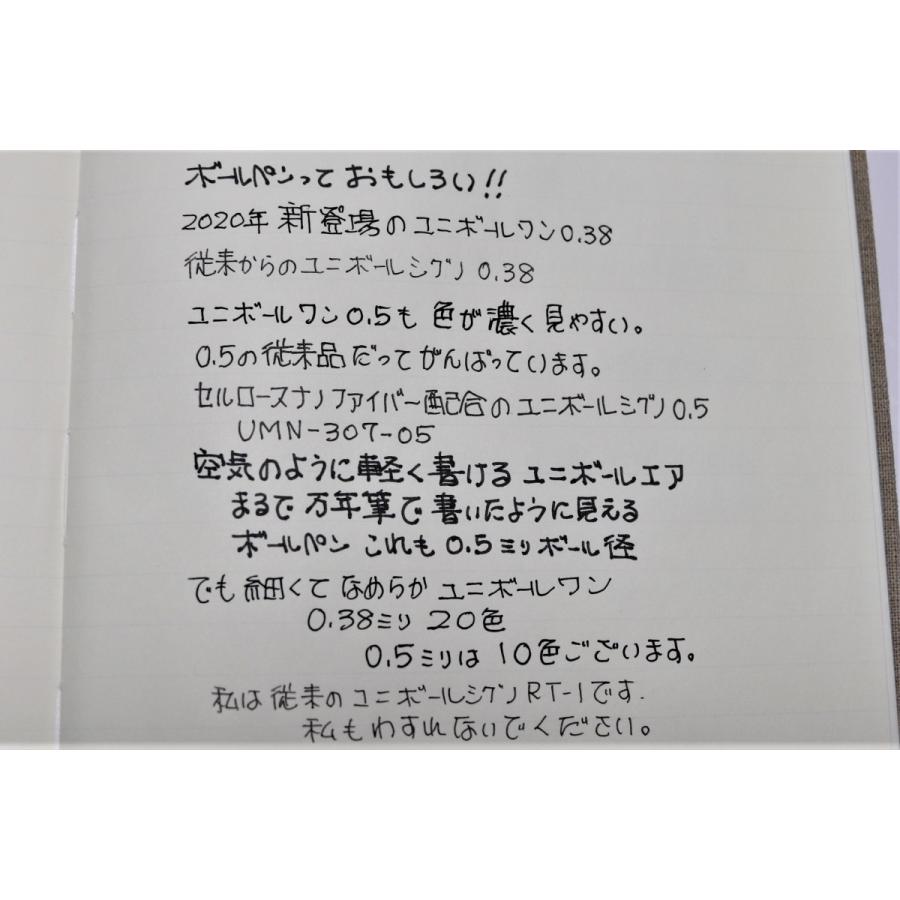 ボールペンって おもしろい!!
2020年 新登場のユニボールワン0.38
従来からのユニボールシグノ 0.38
ユニボールワン0.5も 色が濃く見やすい。
0.5の従来品だってがんばっています。
セルロースナノファイバー配合のユニボールシグノ0.5
UMN-307-05
空気のように軽く書ける ユニボールエア
まるで 万年筆で書いたように見える
ボールペン これも 0.5ミリボール径
でも 細くて なめらか ユニボールワン
0.38ミリ 20色
0.5ミリは 10色ございます。
私は従来のユニボールシグノRT-1です.
私もわすれないでください。